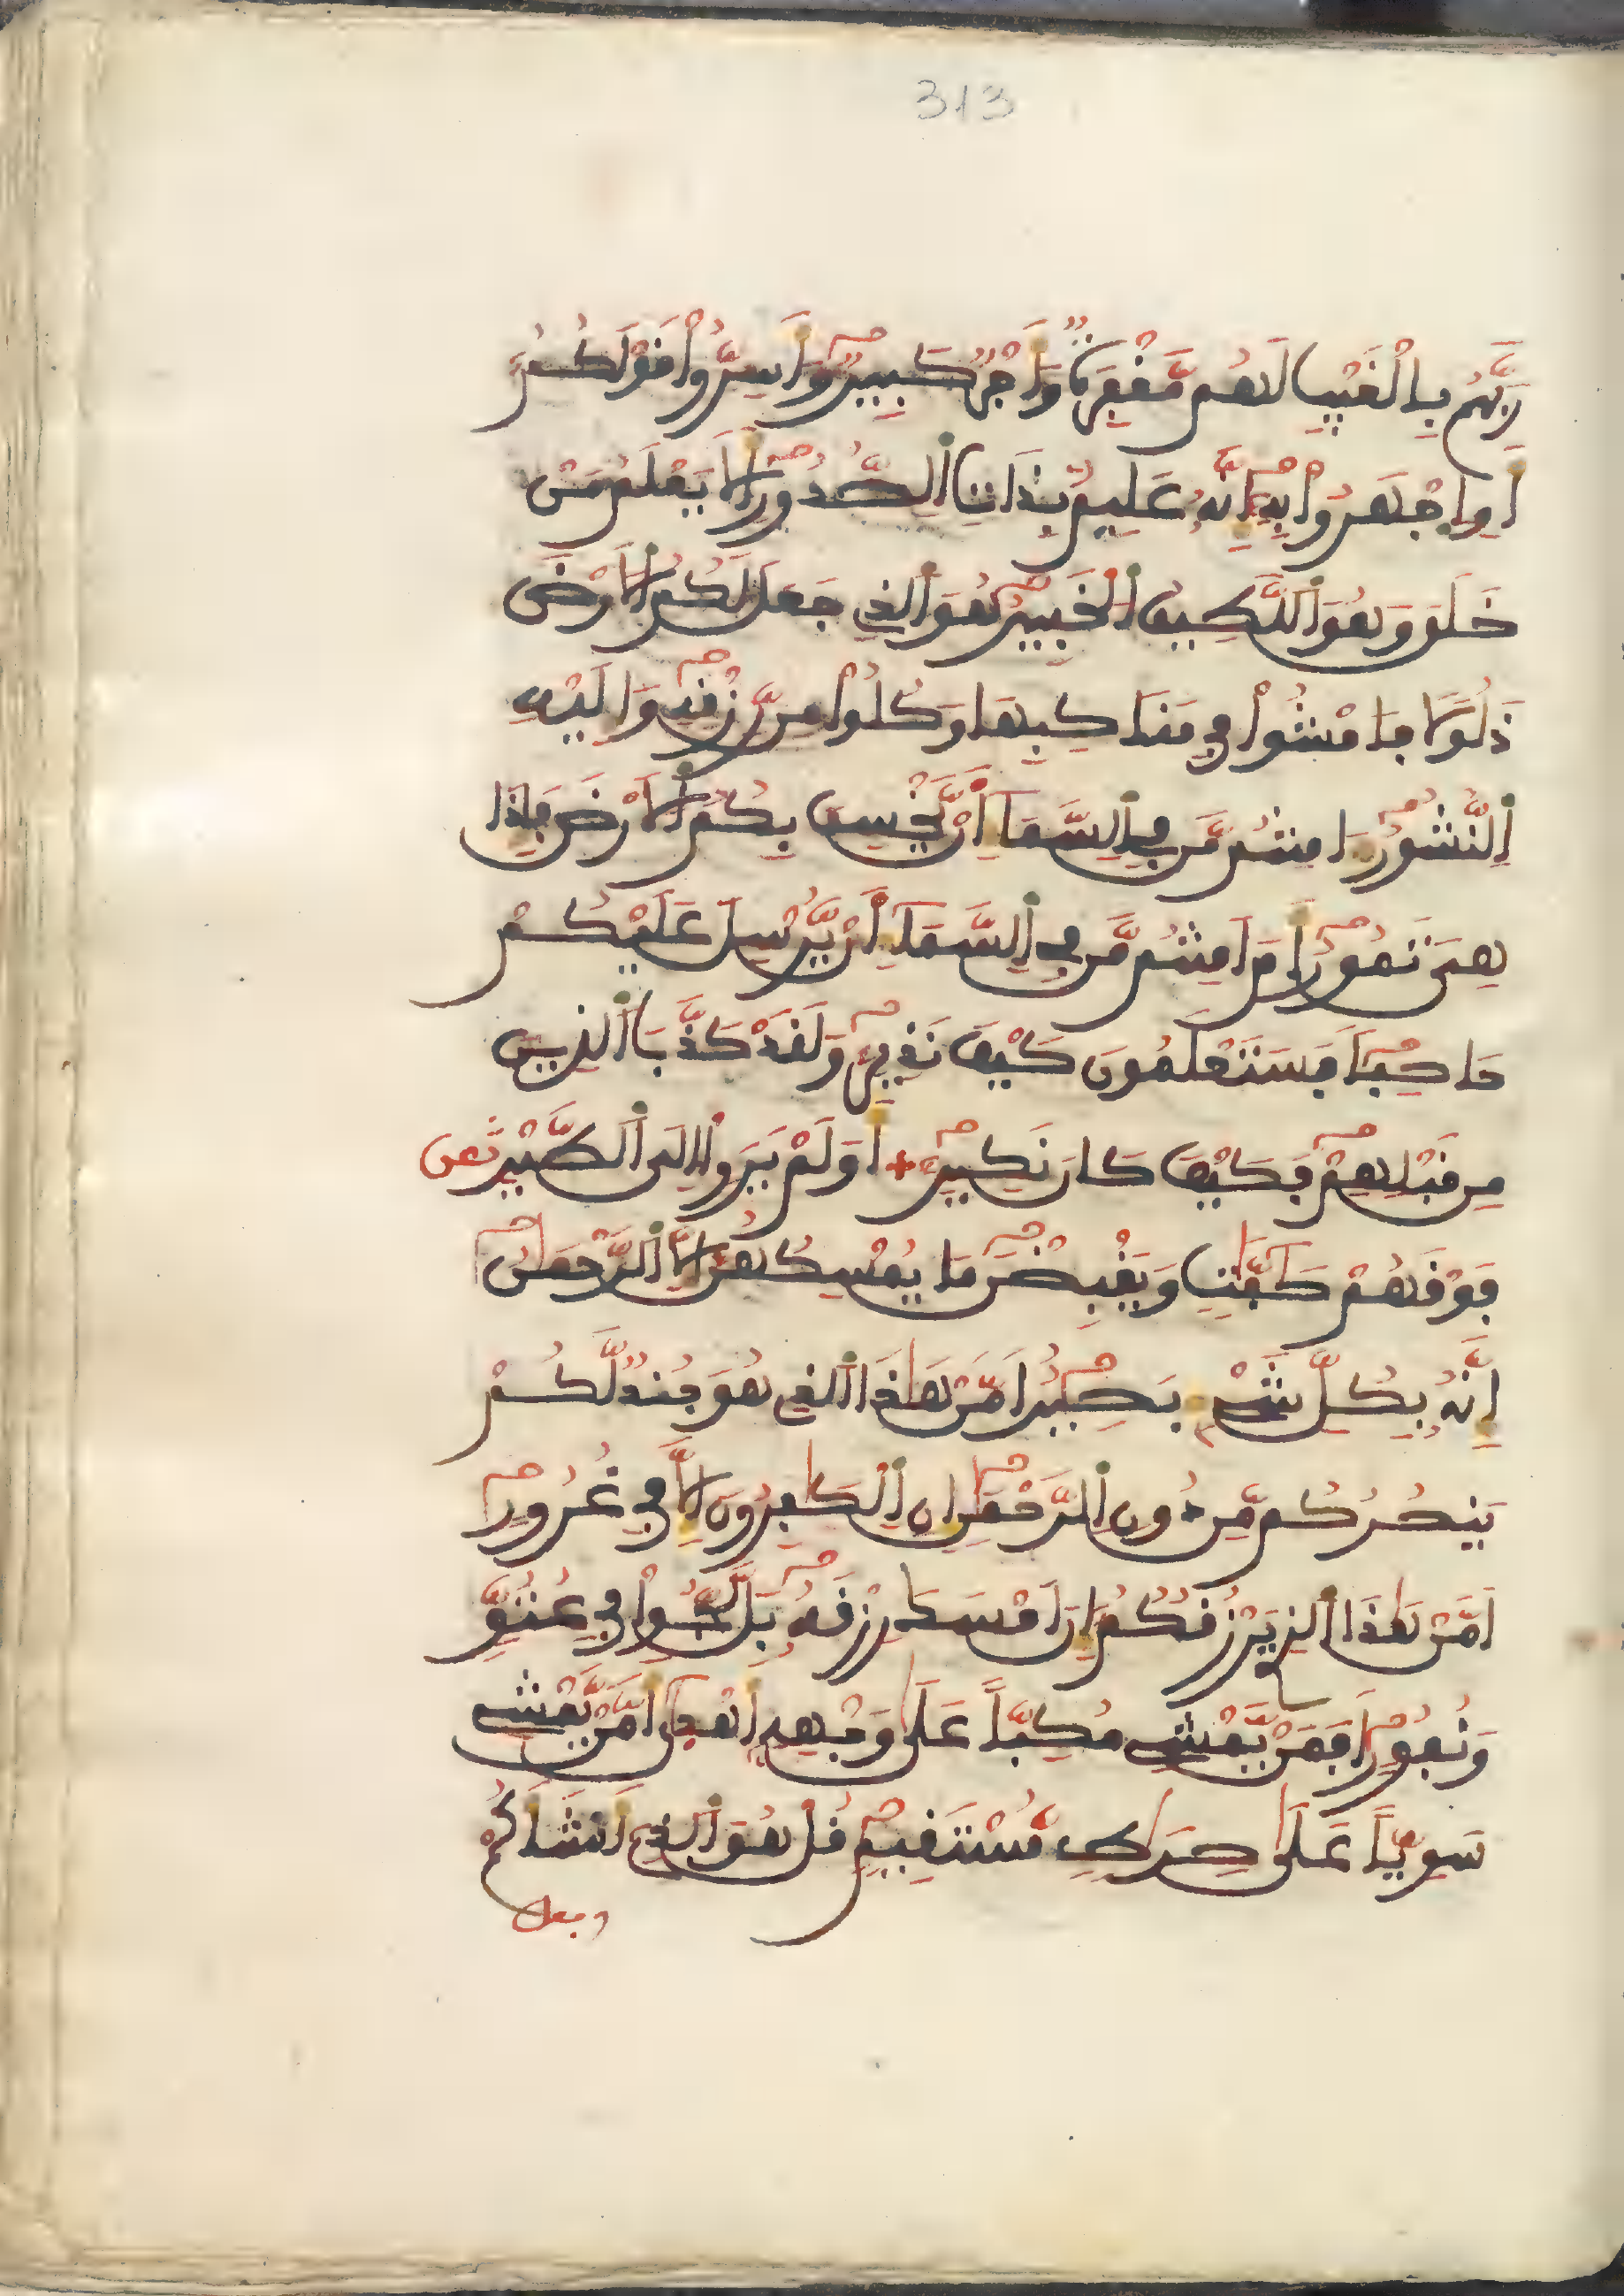 313
رَبَّهُم بِالْغَيْبِ لَهُم مَّغْفِرَةٌ وَأَجْرٌ كَبِيرٌ وَأَسِرُّوا قَوْلَكُمُ
أَوِ اجْهَرُوا بِهِ إِنَّهُ عَلِيمٌ بِذَاتِ الصُّدُورِ أَلَا يَعْلَمُ مَنْ
خَلَقَ وَهُوَ اللَّطِيفُ الْخَبِيرُ هُوَ الَّذِي جَعَلَ لَكُمُ الْأَرْضَ
ذَلُولًا فَامْشُوا فِي مَنَاكِبِهَا وَكُلُوا مِن رِّزْقِهِ وَإِلَيْهِ
النُّشُورُ ءَامِنتُم مَّن فِي السَّمَاءِ أَنْ يَّخْسِفَ بِكُمُ الْأَرْضَ فَإِذَا
هِيَ تَمُورُ أَمَ امِنتُم مَّن فِي السَّمَاءِ أَنْ يُّرْسِلَ عَلَيْكُمْ
حَاصِبًا فَسَتَعْلَمُونَ كَيْفَ نَذِيرِ وَلَقَدْ كَذَّبَ الَّذِينَ
مِن قَبْلِهِمْ فَكَيْفَ كَانَ نَكِيرِ أَوَلَمْ يَرَوْا إِلَى الطَّيْرِ ثمن
فَوْقَهُمْ صَافَّاتٍ وَيَقْبِضْنَ مَا يُمْسِكُهُنَّ إِلَّا الرَّحْمَنُ
إِنَّهُ بِكُلِّ شَيْءٍ بَصِيرٌ أَمَّنْ هَذَا الَّذِي هُوَ جُندٌ لَّكُمْ
يَنصُرُكُم مِّن دُونِ الرَّحْمَنِ إِنِ الْكَافِرُونَ إِلَّا فِي غُرُورٍ
أَمَّنْ هَذَا الَّذِي يَرْزُقُكُمْ إِنْ أَمْسَكَ رِزْقَهُ بَل لَّجُّوا فِي عُتُوٍّ
وَنُفُورٍ أَفَمَنْ يَّمْشِي مُكِبًّا عَلَى وَجْهِهِ أَهْدَى أَمَّنْ يَّمْشِي
سَوِيًّا عَلَى صِرَاطٍ مُّسْتَقِيمٍ قُلْ هُوَ الَّذِي أَنشَأَكُمْ
وجعل